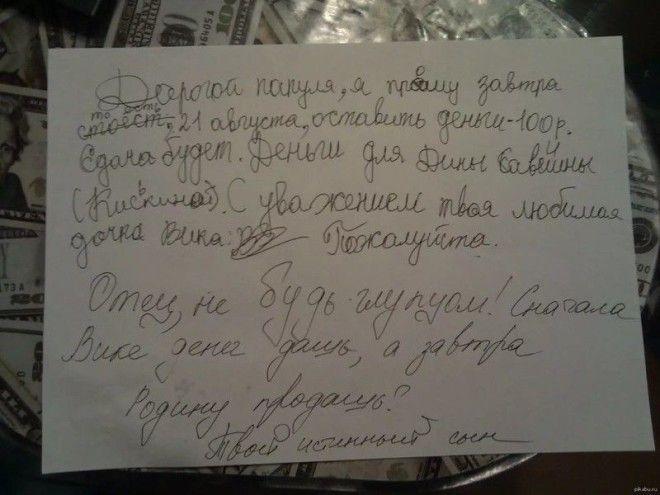 Дорогой папуля, я прошу завтра
то есть
стоест, 21 августа, оставить деньги-100р.
Сдача будет. Деньги для Дины Савв
(Кис). С уважением твоя любимая
дочка Вика. Пожалуйста.
Отец, не будь глупцом! Сначала
Вике денег дашь, а завтра
Родину продашь?
Твой истинный сын
pikabu.ru